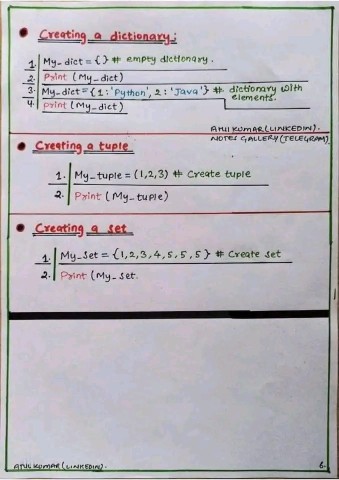 Creating a dictionary:
1. My_dict = {} # empty dictionary.
2. Print (My_dict)
3. My_dict = {1:'Python', 2:'Java'} # dictionary with
elements.
4. Print (My_dict)
ATULKUMAR (LINKEDIN).
NOTES GALLERY (TELEGRAM)
Creating a tuple
1. My_tuple = (1,2,3) # Create tuple
2. Print (My_tuple)
Creating a set
1. My_Set = {1,2,3,4,5,5,5} # Create set
2. Print (My_set.
ATULKUMAR (LINKEDIN).
6.